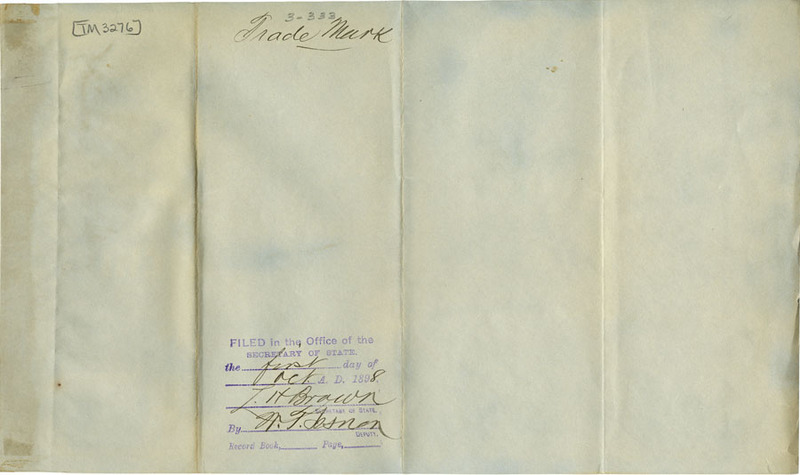 [TM 3276]
3-333
Trade Mark
FILED in the Office of the
SECRETARY OF STATE,
the first day of
Oct A. D. 1898.
L. H Brown
SECRETARY OF STATE.
By
DEPUTY.
Record Book, Page,